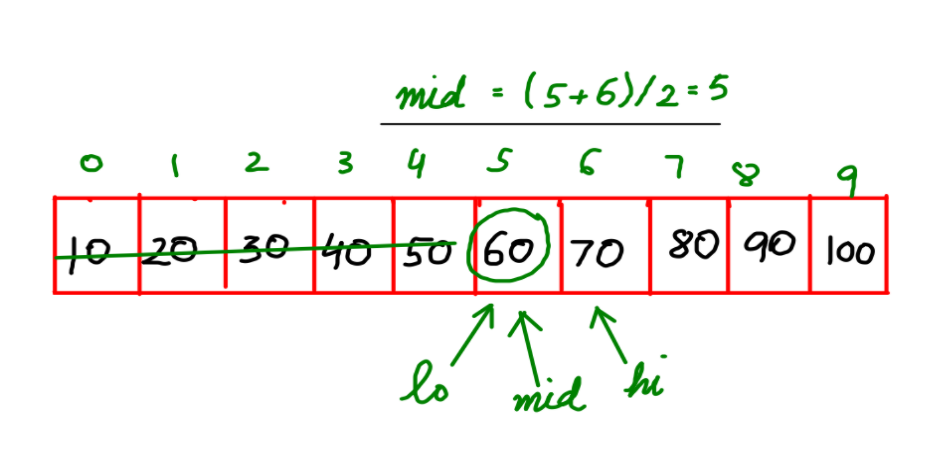 mid = (5+6)/2=5
0 1 2 3 4 5 6 7 8 9
10 20 30 40 50 60 70 80 90 100
lo mid hi